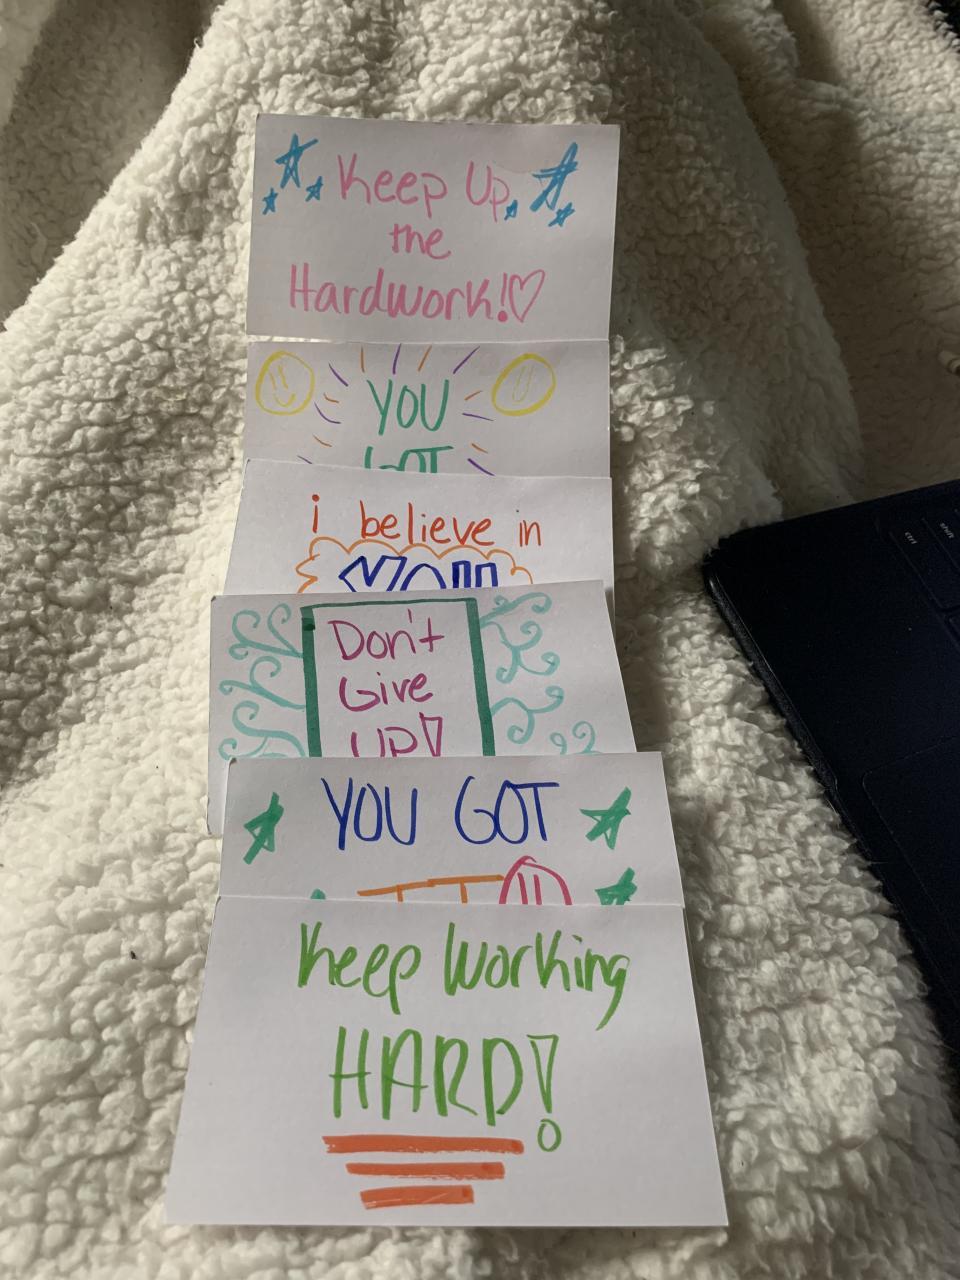 Keep Up
the
Hardwork!♡
YOU
GOT
i believe in
YOU
Don't
Give
UP!
YOU GOT
Keep Working
HARD!
shift
ctrl